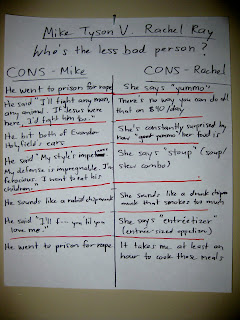 Mike Tyson V. Rachel Ray
Who's the less bad person?
CONS - Mike
He went to prison for rape
He said "I'll fight any man,
any animal. If Jesus were
here, I'd fight him too."
He bit both of Evander
Holyfield's ears
He said "My style's impetuous.
My defense is impregnable. I'm
ferocious. I want to eat his
children."
He sounds like a chipmunk
He said "I'll f--- you til you
love me."
He went to prison for rape
CONS - Rachel
She says "yummo"
There's no way you can do all
that on $40/day
She's constantly surprised by
how "yummo" her food is
She says "stoup" (soup/
stew combo)
She sounds like a drunk chip
munk that smokes too much
She says "entréetizer"
(entrée-sized appetizer)
It takes me at least an
hour to cook these meals